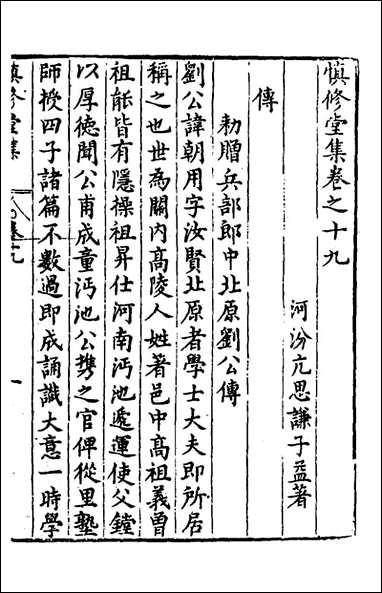 慎修堂集卷之十九
河汾亢思謙子益著
傳
勑贈兵部郎中北原劉公傳
劉公諱朝用字汝賢北原者學士大夫即所居
稱之也世為關内髙陵人姓著邑中髙祖義曽
祖能皆有隱操祖昇仕河南沔池遞運使父鏜
以厚德聞公甫成童沔池公携之官俾從里塾
師授四子諸篇不數過即成誦識大意一時學